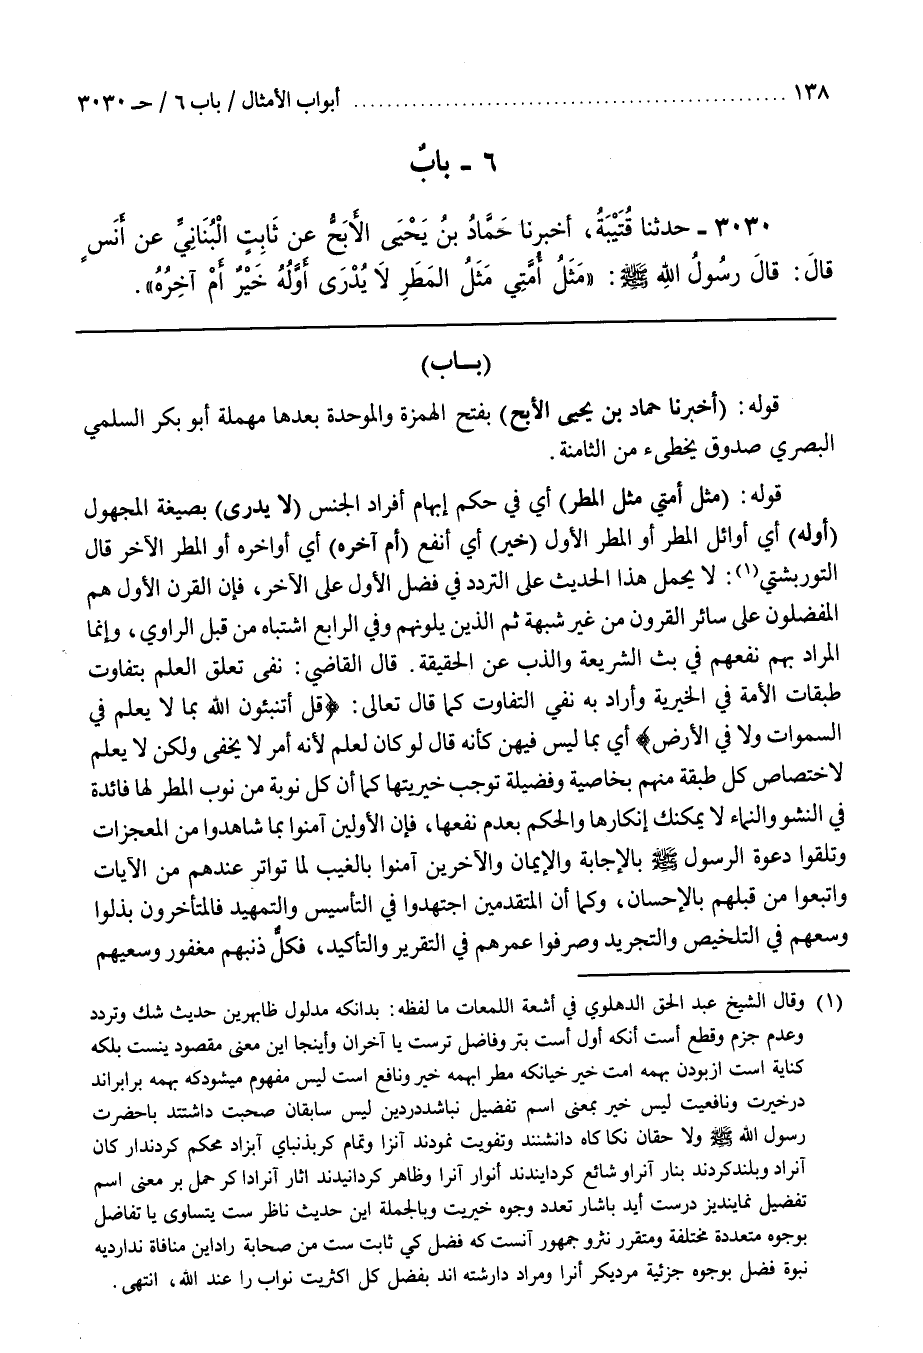 ١٣٨ ........ أبواب الأمثال / باب ٦ / حـ ٣٠٣٠
٦ - بابٌ
٣٠٣٠ - حدثنا قُتَيْبَةُ، أخبرنا حَمَّادُ بنُ يَحْيَى الأَبَحُّ عن ثَابِتٍ الْبُنَانِيِّ عن أَنَسٍ
قالَ: قالَ رسُولُ اللهِ ﷺ: «مَثَلُ أُمَّتِي مَثَلُ المَطَرِ لَا يُدْرَى أَوَّلُهُ خَيْرٌ أَمْ آخِرُهُ».
(بـاب)
قوله: (أخبرنا حماد بن يحيى الأبح) بفتح الهمزة والموحدة بعدها مهملة أبو بكر السلمي
البصري صدوق يخطىء من الثامنة.
قوله: (مثل أمتي مثل المطر) أي في حكم إبهام أفراد الجنس (لا يدرى) بصيغة المجهول
(أوله) أي أوائل المطر أو المطر الأول (خير) أي أنفع (أم آخره) أي أواخره أو المطر الآخر قال
التوربشتي(١): لا يحمل هذا الحديث على التردد في فضل الأول على الآخر، فإن القرن الأول هم
المفضلون على سائر القرون من غير شبهة ثم الذين يلونهم وفي الرابع اشتباه من قبل الراوي، وإنما
المراد بهم نفعهم في بث الشريعة والذب عن الحقيقة. قال القاضي: نفى تعلق العلم بتفاوت
طبقات الأمة في الخيرية وأراد به نفي التفاوت كما قال تعالى: ﴿قل أتنبئون الله بما لا يعلم في
السموات ولا في الأرض﴾ أي بما ليس فيهن كأنه قال لو كان لعلم لأنه أمر لا يخفى ولكن لا يعلم
لاختصاص كل طبقة منهم بخاصية وفضيلة توجب خيريتها كما أن كل نوبة من نوب المطر لها فائدة
في النشو والنماء لا يمكنك إنكارها والحكم بعدم نفعها، فإن الأولين آمنوا بما شاهدوا من المعجزات
وتلقوا دعوة الرسول ﷺ بالإجابة والإيمان والآخرين آمنوا بالغيب لما تواتر عندهم من الآيات
واتبعوا من قبلهم بالإحسان، وكما أن المتقدمين اجتهدوا في التأسيس والتمهيد فالمتأخرون بذلوا
وسعهم في التلخيص والتجريد وصرفوا عمرهم في التقرير والتأكيد، فكلٌّ ذنبهم مغفور وسعيهم
(١) وقال الشيخ عبد الحق الدهلوي في أشعة اللمعات ما لفظه: بدانكه مدلول ظاهرين حديث شك وتردد
وعدم جزم وقطع أست أنكه أول أست بتر وفاضل ترست يا آخران وأينجا اين معنى مقصود ينست بلكه
كناية است ازبودن بهمه امت خير خيانكه مطر ابهمه خير ونافع است ليس مفهوم ميشودكه بهمه برابراند
درخيرت ونافعيت ليس خير بمعنى اسم تفضيل نباشددردين ليس سابقان صحبت داشتند باحضرت
رسول الله ﷺ ولا حقان نكا كاه دانشند وتفويت نمودند آنزا وتمام كربذنباي آبزاد محكم كردندار كان
آنراد وبلندكردند بنار آنراو شائع كردايندند أنوار آنرا وظاهر كردانيدند اثار آنرادا كر حمل بر معنى اسم
تفضيل نمايندیز درست أيد باشار تعدد وجوه خيريت وبالجملة اين حديث ناظر ست يتساوى يا تفاضل
بوجوه متعددة مختلفة ومتقرر نثرو جمهور آنست كه فضل كي ثابت ست من صحابة راداين منافاة نداردیه
نبوة فضل بوجوه جزئية مرديكر أنرا ومراد دارشته اند بفضل كل اكثريت نواب را عند الله، انتهى.